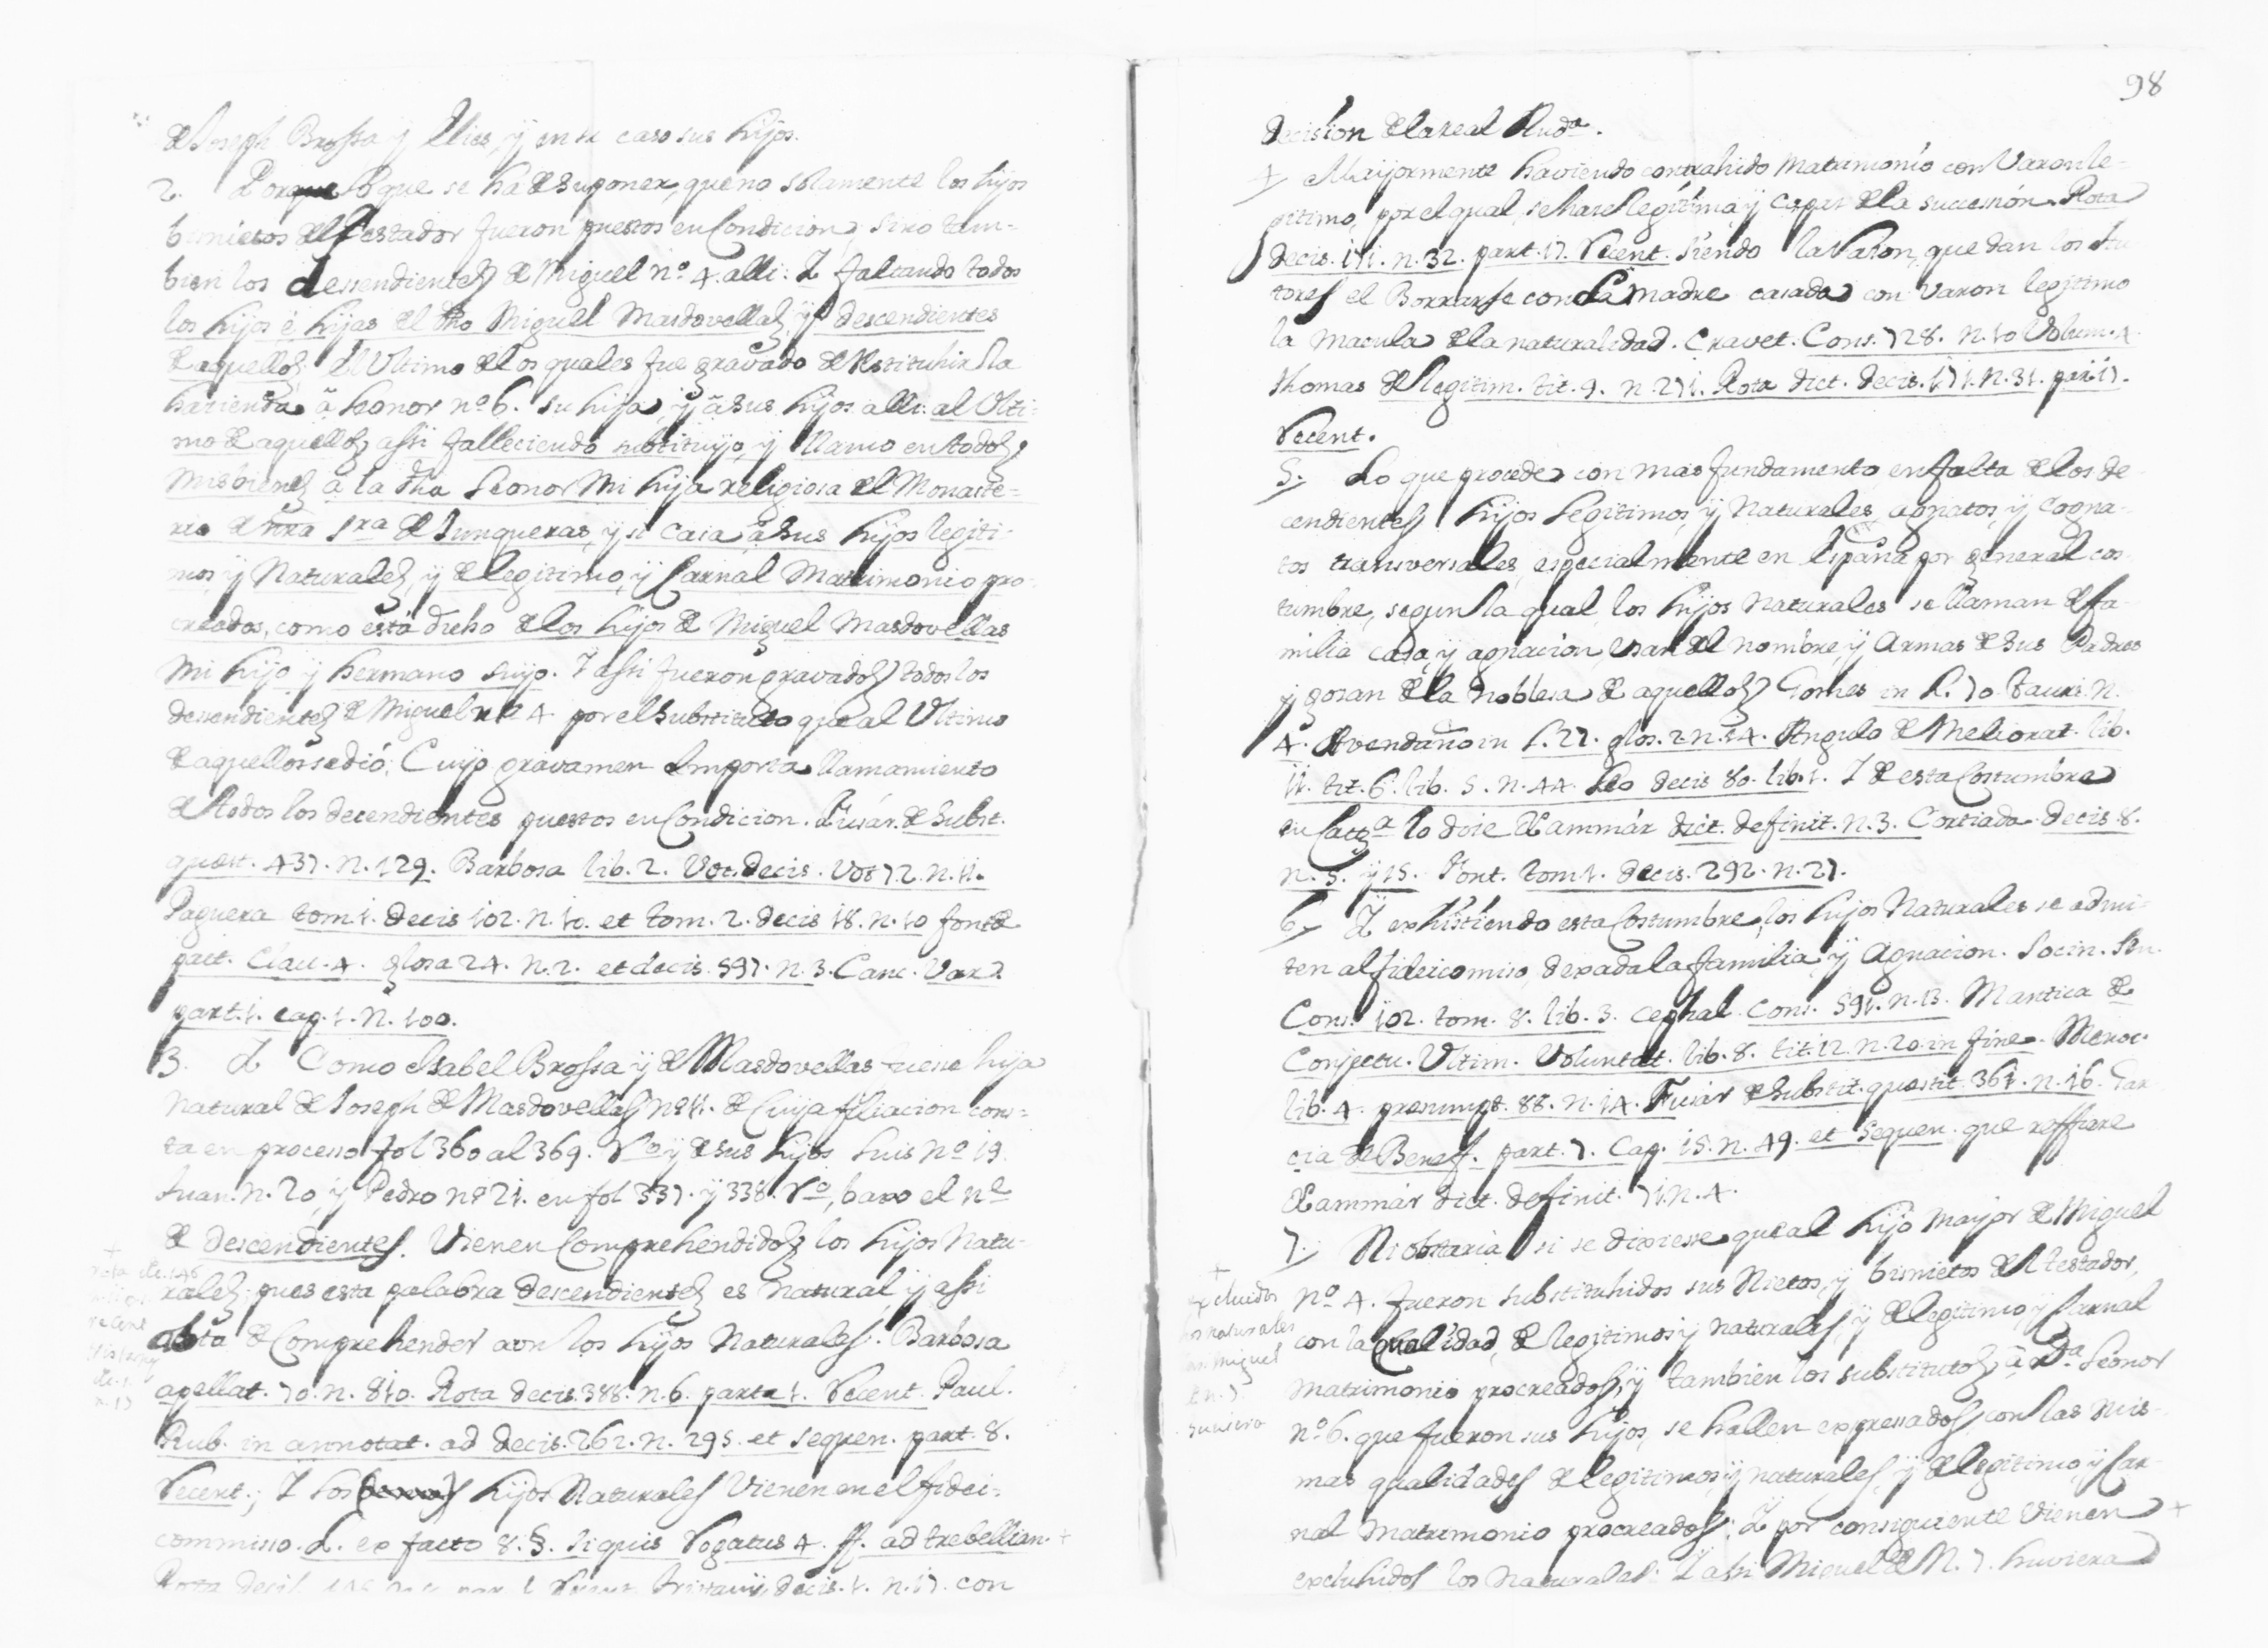 de Joseph Brossa y Llies, y en su caso sus hijos.
2. Porque lo que se ha de suponer, que no solamente los hijos
bisnietos del testador fueron puestos en Condicion, sino tam-
bien los dessendientes de Miguel nº 4. alli: Y faltando todos
los hijos é hijas del dho Miguel Masdovellas, y descendientes
de aquellos; el Ultimo de los quales fue gravado de Restituhir la
hazienda â Leonor nº 6. su hija, y â sus hijos alli: al Ulti-
mo de aquellos assi falleciendo substituyo, y llamo en todos
mis bienes â la dha Leonor Mi hija religiosa del Monaste-
rio de nra Sra de Junqueras, y si casa, â sus hijos legiti-
mos y Naturales, y de legitimo, y Carnal Matrimonio pro-
creados, como está dicho de los hijos de Miguel Masdovellas
mi hijo y hermano suyo. Y assi fueron gravados todos los
dessendientes de Miguel nº 4. por el Substituto que al Ultimo
de aquellos se dió; Cuyo gravamen Importa llamamiento
de todos los decendientes puestos en Condicion. Fusár. de Subst.
quæst. 437. n. 129. Barbosa lib. 2. Vot. decis. Vot 72. n. 11.
Paguera tom. 1. decis 102. n. 10. et tom. 2. decis 18. n. 10 fonte
pact. Clau. 4. glosa 24. n. 2. et decis. 597. n. 3. Canc. Var.
part. 1. cap. 1. n. 100.
3. Y Como Isabel Brossa y de Masdovellas fuesse hija
natural de Joseph de Masdovellas nº 11. de Cuya filiacion cons-
ta en processo fol 360 al 369. Vº y de sus hijos Luis nº 19.
Juan. n. 20, y Pedro nº 21. en fol 337. y 338. Vº, baxo el nº
de descendientes. Vienen Comprehendidos los hijos Natu-
rales; pues esta palabra descendientes es natural, y assi
apta de Comprehender aon los hijos Naturales. Barbosa
apellat. 70. n. 810. Rota decis. 388. n. 6. parte 1. Recent. Paul.
Rub. in annotat. ad decis. 262. n. 295. et sequen. part. 8.
Recent.; Y los hijos Naturales Vienen en el fidei-
commisso. L. ex facto 8. §. si quis Rogatus 4. ff. ad trebellian. +
Rota decis. decis. 1. n. 17. con
+
98
decision de la real Audª.
4 Mayormente haviendo contrahido Matrimonio con Varon le-
gitimo, por el qual, se hase legitima, y capas de la succession. Rota
decis. 171. n. 32. part. 17. Recent. siendo la rason, que dan los Au
tores el Borrarse con la madre casada con Varon legitimo
la macula de la naturalidad. Cravet. Cons. 728. n. 10 Volum. 4.
thomas de legitim. tit. 9. n. 271. Rota dict. decis. 171. n. 31. par. 17.
Recent.
5. Lo que procede con mas fundamento en falta de los de
cendientes hijos Legitimos, y Naturales, agnatos, y Cogna-
tos transversales, especialmente en España por general cos
tumbre, segun la qual, los hijos Naturales se llaman de fa-
milia casa, y agnacion, Usan del nombre, y Armas de sus Padres
y gosan de la noblesa de aquellos Gomes in L. 70 tauri. n.
4. Avendaño in L. 27. glos. 2 n. 14. Angulo de Meliorat. lib.
11. tit. 6. lib. 5. n. 44. Leo decis 80. lib. 1. Y de esta Costumbre
en Cattª lo dise Xammár dict. definit. n. 3. Cortiada decis. 8.
n. 5. y 15. Font. tom 1. decis. 292. n. 27.
6. Y exhistiendo esta Costumbre, los hijos Naturales se admi-
ten al fideicomiso, dexada la familia, y Agnacion. Socin. Iun.
Cons. 102. tom. 8. lib. 3. Cephal. Cons. 591. n. 13. Mantica de
Conjectu. Ultim. Voluntat. lib. 8. tit. 12. n. 20. in fine. Menoc.
lib. 4. presumpt. 88. n. 14. Fusár de Substit. quæstit. 361. n. 16. Gar-
cia de Benef. part. 7. Cap. 15. n. 49. et sequen. que reffiere
Xammár dict. definit. 71. n. 4.
7. Ni Obstaria si se dixesse que al hijo mayor de Miguel
nº 4. fueron substituhidos sus Nietos, y bisnietos del testador,
con la Qualidad, de legitimos y naturales, y de legitimo, y Carnal
matrimonio procreados, y tambien los substitutos â dª Leonor
nº 6. que fueron sus hijos, se hallen expressados con las mis-
mas qualidades de legitimos, y naturales, y de legitimo, y Car-
nal matrimonio procreados; Y por consiguiente Vienen +
excluhidos los Naturales. Y assi Miguel de N. 7. huviera
+
excluidos
los naturales
Miguel